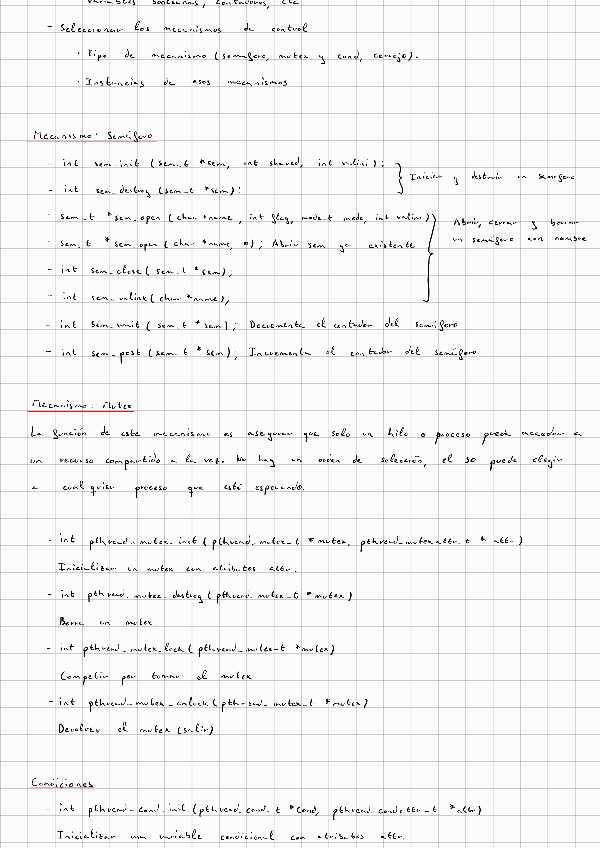 variables booleanas, contadores, etc
- Seleccionar los mecanismos de control
· Tipo de mecanismo (semáforo, mutex y cond, cerrojo).
· Instancias de esos mecanismos
Mecanismo: Semáforo
- int sem_init (sem_t *sem, int shared, int valini);
- int sem_destroy (sem_t *sem);
Iniciar y destruir un semáforo
- sem_t *sem_open (char *name, int flag, mode_t mode, int valini)
- sem_t *sem_open (char *name, 0); Abrir sem ya existente
Abrir, cerrar y borrar
un semáforo con nombre
- int sem_close( sem_t *sem);
- int sem_unlink( char *name);
- int sem_wait ( sem_t *sem); Decrementa el contador del semáforo
- int sem_post (sem_t *sem); Incrementa el contador del semáforo
Mecanismo: Mutex
La función de este mecanismo es asegurar que solo un hilo o proceso pueda acceder a
un recurso compartido a la vez. No hay un orden de selección, el SO puede elegir
a cualquier proceso que esté esperando.
- int pthread_mutex_init (pthread_mutex_t *mutex, pthread_mutexattr_t * attr)
Inicializar un mutex con atributos attr.
- int pthread_mutex_destroy (pthread_mutex_t *mutex)
Borra un mutex
- int pthread_mutex_lock (pthread_mutex_t *mutex)
Competir por tomar el mutex
- int pthread_mutex_unlock (pthread_mutex_t *mutex)
Devolver el mutex (salir)
Condiciones
- int pthread_cond_init (pthread_cond_t *cond, pthread_condattr_t *attr)
Inicializar una variable condicional con atributos attr.